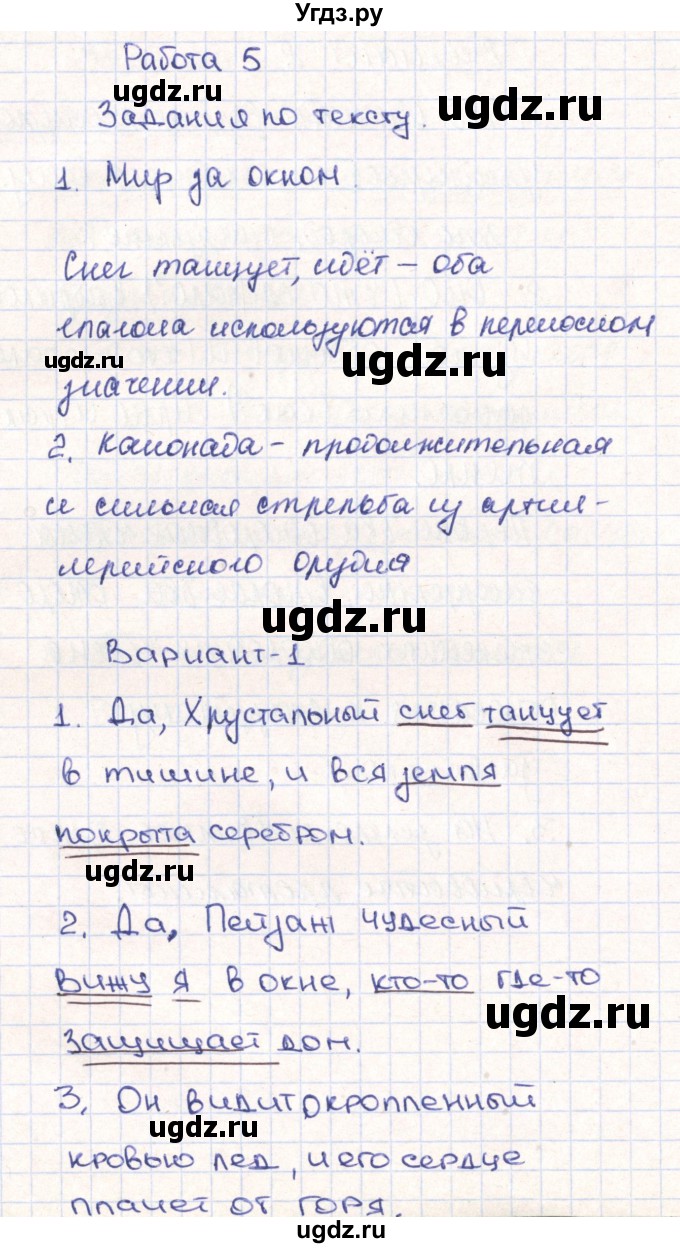 Угдз.ру
Работа 5
ugdz.ru
Задания по тексту.
1. Мир за окном.
Снег танцует, идёт – оба
глагола используются в переносном
ugdz.ru ugdz.ru
значении.
2. Канонада – продолжительная
и сильная стрельба из артил-
лерийского орудия
ugdz.ru
Вариант-1
1. Да, Хрустальный снег танцует
ugdz.ru
в тишине, и вся земля
покрыта серебром.
ugdz.ru
2. Да, Пейзаж чудесный
вижу я в окне, кто-то где-то
ugdz.ru
защищает дом.
3. Он видит окропленный
ugdz.ru
кровью лед, и его сердце
плачет от горя.
ugdz.ru